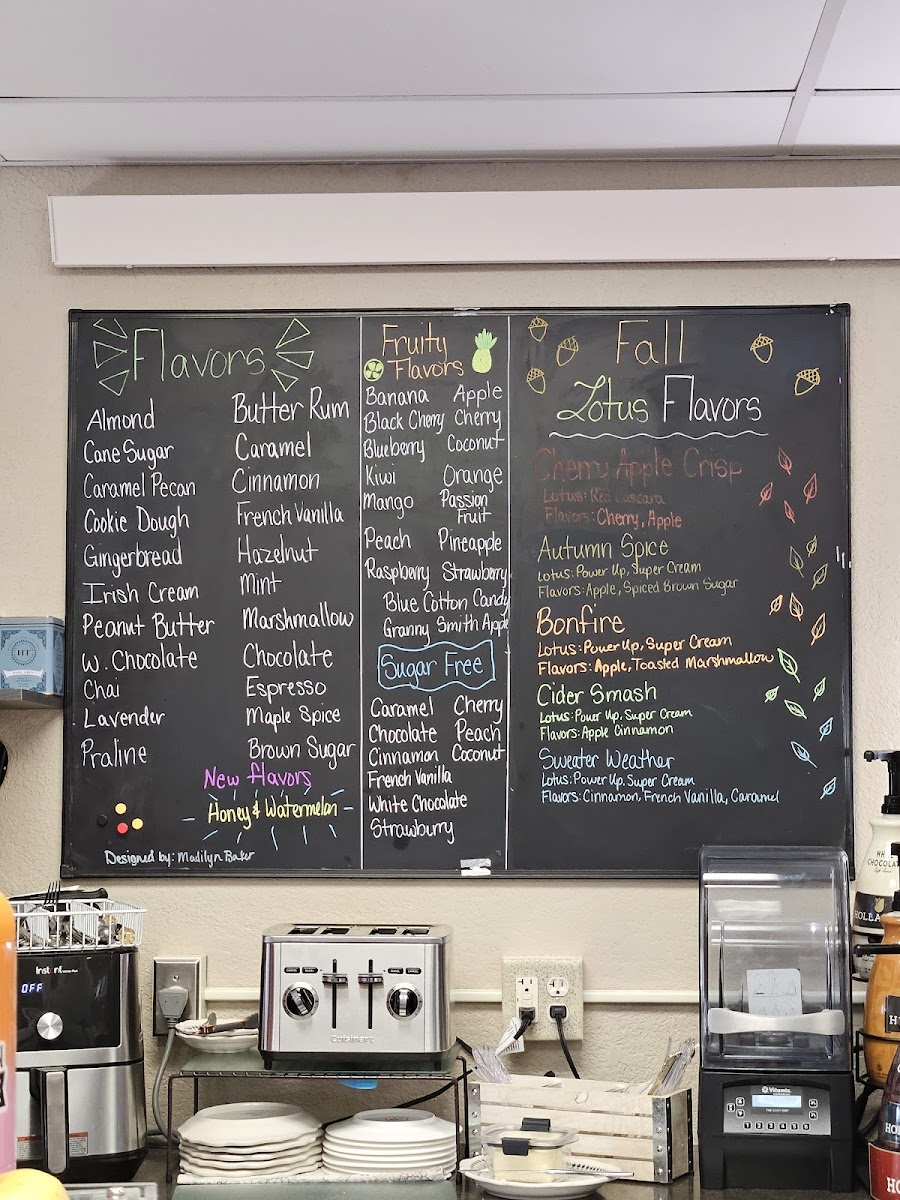 Flavors
Almond
Cane Sugar
Caramel Pecan
Cookie Dough
Gingerbread
Irish Cream
Peanut Butter
W. Chocolate
Chai
Lavender
Praline
Butter Rum
Caramel
Cinnamon
French Vanilla
Hazelnut
Mint
Marshmallow
Chocolate
Espresso
Maple Spice
Brown Sugar
New flavors
Honey & Watermelon
Designed by: Madilyn Baker
Fruity
Flavors
Banana Apple
Black Cherry Cherry
Blueberry Coconut
Kiwi Orange
Mango Passion
Fruit
Peach Pineapple
Raspberry Strawberry
Blue Cotton Candy
Granny Smith Apple
Sugar Free
Caramel Cherry
Chocolate Peach
Cinnamon Coconut
French Vanilla
White Chocolate
Strawburry
Fall
Lotus Flavors
Cherry Apple Crisp
Lotus: Red Cascara
Flavors: Cherry, Apple
Autumn Spice
Lotus: Power Up, Super Cream
Flavors: Apple, Spiced Brown Sugar
Bonfire
Lotus: Power Up, Super Cream
Flavors: Apple, Toasted Marshmallow
Cider Smash
Lotus: Power Up, Super Cream
Flavors: Apple Cinnamon
Sweater Weather
Lotus: Power Up, Super Cream
Flavors: Cinnamon, French Vanilla, Caramel
Instant
OFF
Cuisinart
Vitamix
1 2 3 4 5 6
WH
CHOCOLAT
HOLLA
HO